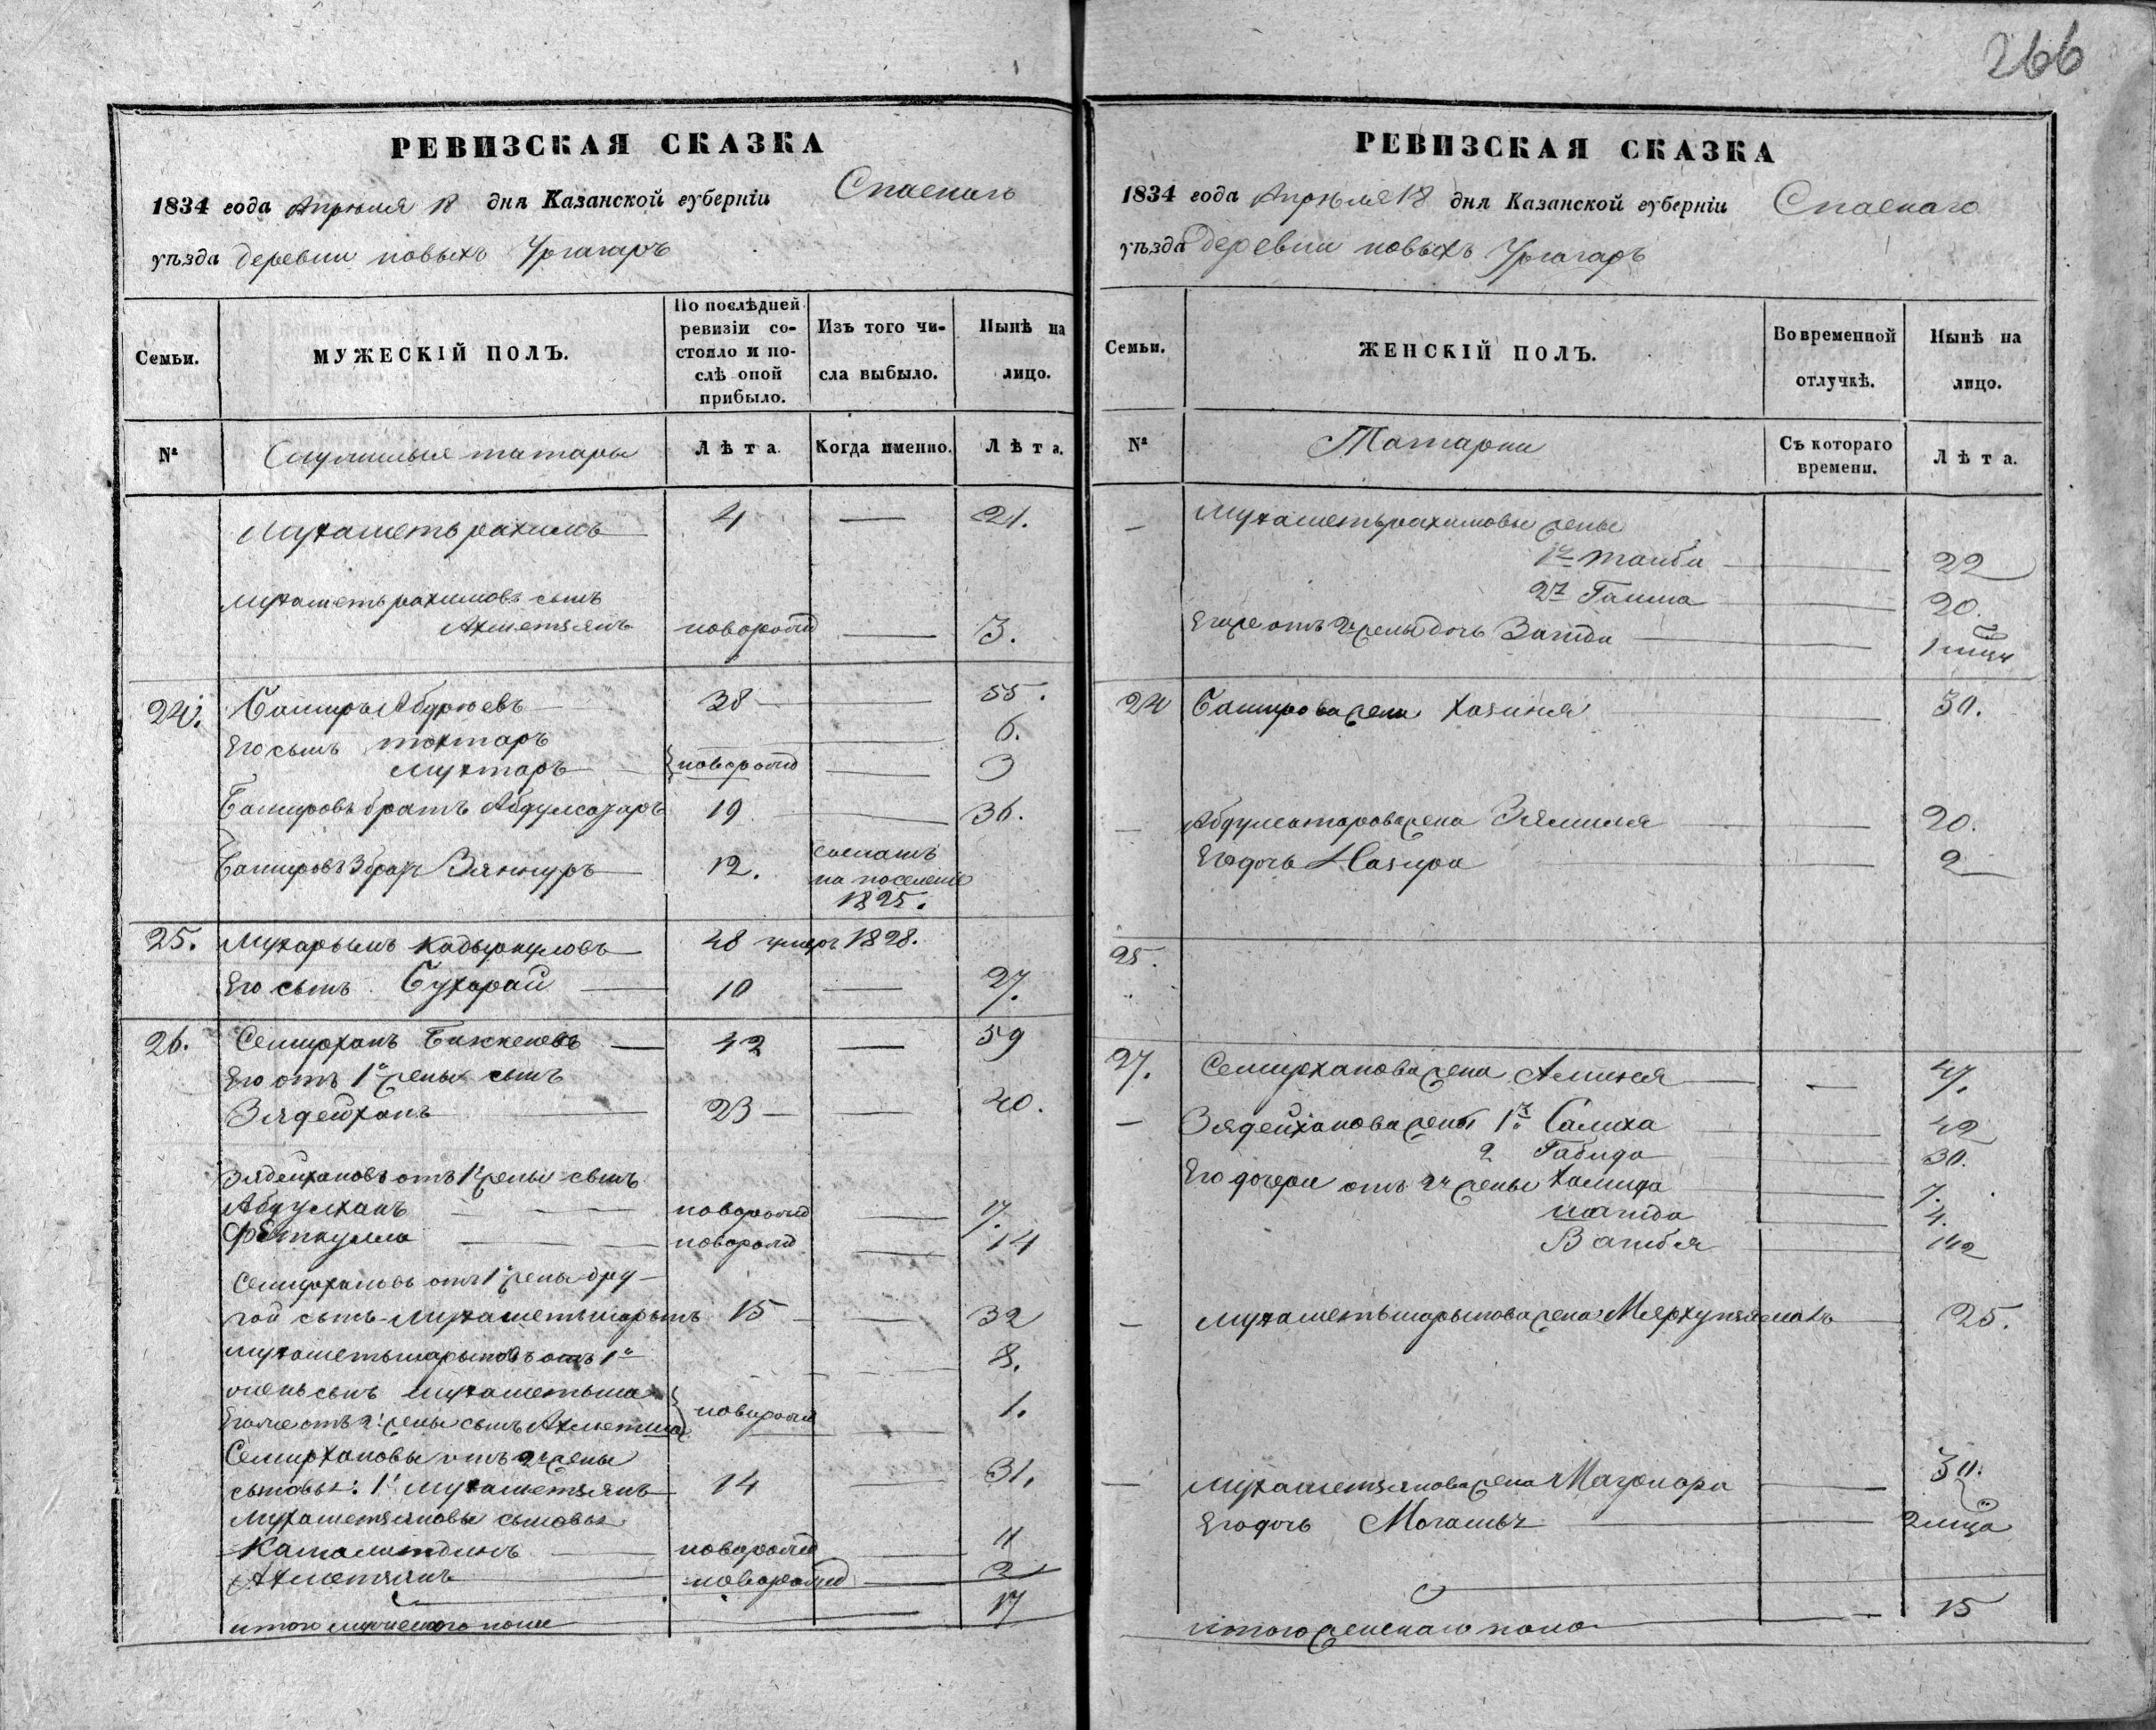 266
РЕВИЗСКАЯ СКАЗКА
1834 года Апреля 18 дня Казанской губерніи Спаскаго
уѣзда деревни новыхъ Ургагаръ
Семьи. МУЖЕСКІЙ ПОЛЪ. По послѣдней ревизіи состояло и послѣ оной прибыло. Изъ того числа выбыло. Нынѣ на лицо.
№ татары Лѣта. Когда именно. Лѣта.
Мухаметь рахимъ 4 — 21.
Мухаметь рахимовъ сынъ
Ахметзянъ новорожд — 3.
24. Баширъ Абдрюевъ 38 — 55.
Его сынъ Тохтаръ 6.
Мухтаръ } новорожд — 3
Башировъ братъ 19 — 36.
Башировъ 3 братъ Зяннуръ 12. сосланъ
на поселение
1825.
25. Мухарямъ Кадыркуловъ 48 умеръ 1828.
Его сынъ Бухарай — 10 — 27.
26. Семирханъ Биккеневъ — 42 — 59
Его отъ 1й жены сынъ
Зядейханъ 23 — 40.
Зядейхановъ отъ 1й жены сынъ
Абдулханъ — новорожд — 17.
Фяткулла — новорожд — 14
Семирхановъ отъ 1й жены дру-
гой сынъ Мухаметьшарыпъ 15 — 32
Мухаметьшарыповъ отъ 1й — 8.
жены сынъ Мухаметьша
Его же отъ 2й жены сынъ Ахметша } новорожд — 1.
Семирхановы отъ 2й жены
сыновья: 1й Мухаметзянъ 14 — 31.
Мухаметзяновы сыновья
Камалитдинъ — новорожд — 11
Ахметзянъ новорожд — 2
итого мужескаго пола 17
РЕВИЗСКАЯ СКАЗКА
1834 года Апреля 18 дня Казанской губерніи Спаскаго
уѣзда деревни новыхъ Ургагаръ
Семьи. ЖЕНСКІЙ ПОЛЪ. Во временной отлучкѣ. Нынѣ на лицо.
№ Татарки Съ котораго времени. Лѣта.
— Мухаметьрахимовы жены
1я Таиба — 22
2я Гайша — 20.
Его же отъ 2й жены дочь Загида — 1
24 Баширова жена Хазиня — 30.
— жена Зямиля — 20.
Его дочь Назира — 2
25.
27. Семирханова жена Аминя — 47.
— Зядейханова жены 1я Салиха — 42
2 Габида — 30.
Его дочери отъ 2й жены Хамида — 7.
4.
142
— Мухаметьшарыпова жена — 25.
— Мухаметзянова жена — 30.
Его дочь — 2
итого женскаго пола — 15